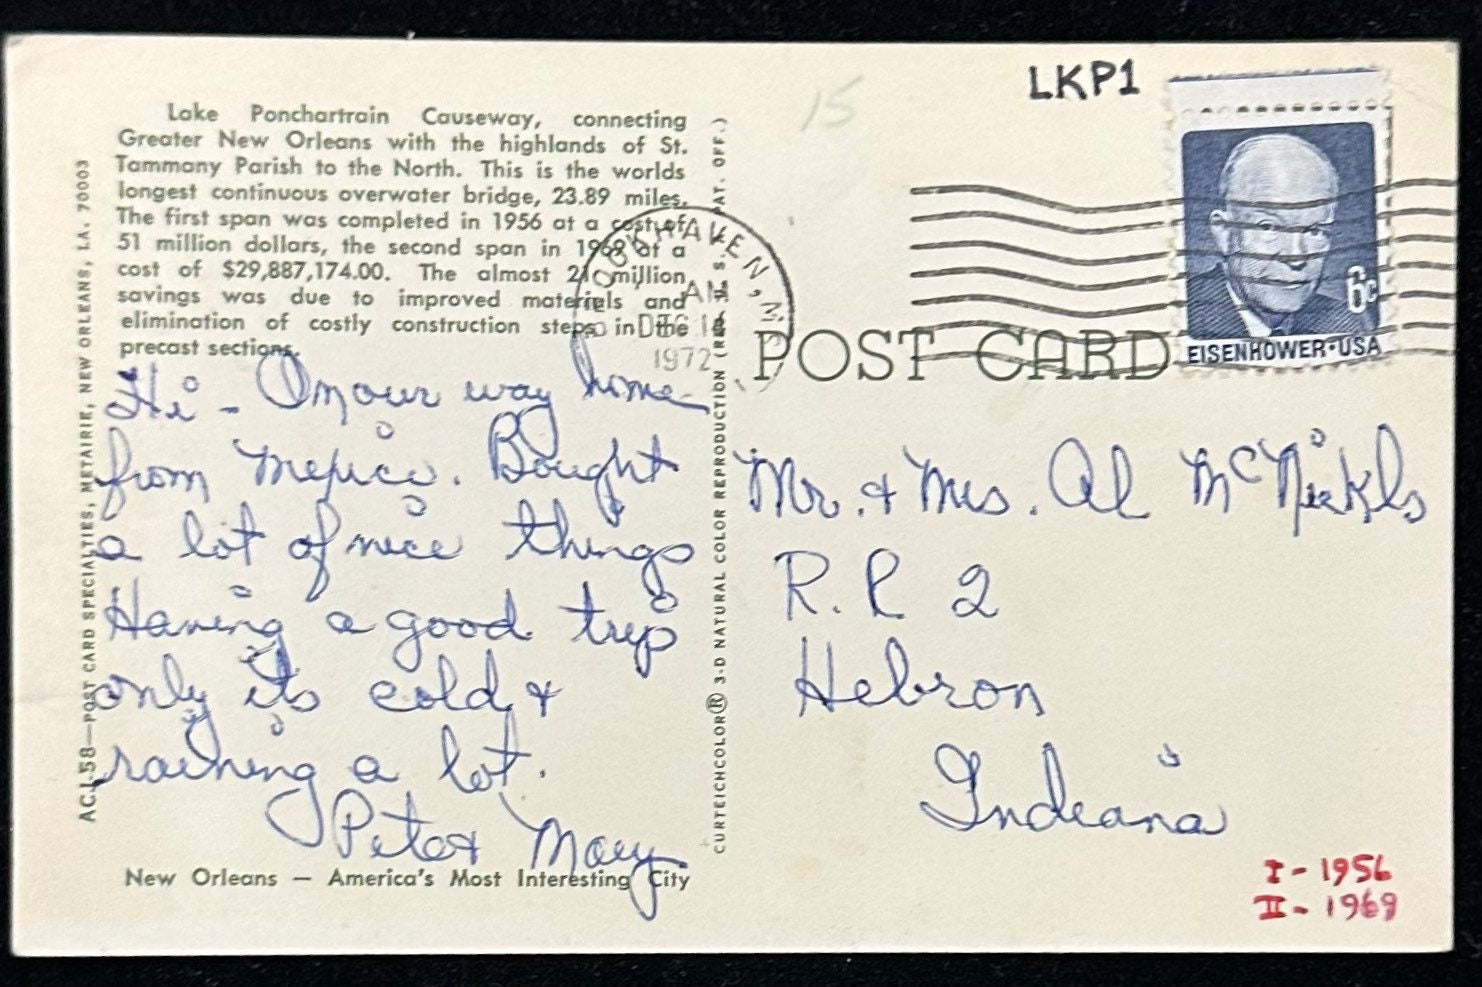 Lake Ponchartrain Causeway, connecting
Greater New Orleans with the highlands of St.
Tammany Parish to the North. This is the worlds
longest continuous overwater bridge, 23.89 miles.
The first span was completed in 1956 at a cost of
51 million dollars, the second span in 1968 at a
cost of $29,887,174.00. The almost 21 million
savings was due to improved materials and
elimination of costly construction steps in the
precast sections.
Hi - On our way home
from Mexico. Bought
a lot of nice things
Having a good trip
only its cold &
raining a lot.
Pete & Mary
New Orleans — America's Most Interesting City
ACJ-58—POST CARD SPECIALTIES, METAIRIE, NEW ORLEANS, LA. 70003
CURTEICHCOLOR® 3-D NATURAL COLOR REPRODUCTION (REG. U. S. PAT. OFF.)
AM
DEC
1972
15
LKP1
6c
EISENHOWER·USA
POST CARD
Mr. & Mrs. Al McNickls
R.R 2
Hebron
Indiana
I - 1956
II - 1969